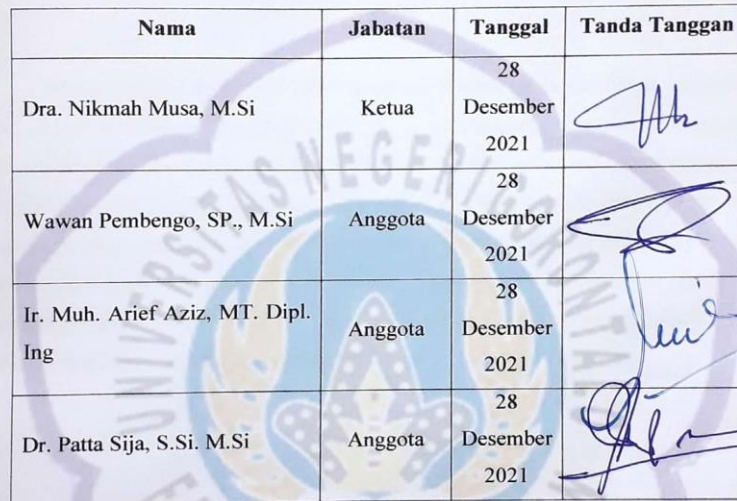 Nama Jabatan Tanggal Tanda Tanggan
Dra. Nikmah Musa, M.Si Ketua 28 Desember 2021
Wawan Pembengo, SP., M.Si Anggota 28 Desember 2021
Ir. Muh. Arief Aziz, MT. Dipl. Ing Anggota 28 Desember 2021
Dr. Patta Sija, S.Si. M.Si Anggota 28 Desember 2021
UNIVERSITAS NEGERI GORONTALO